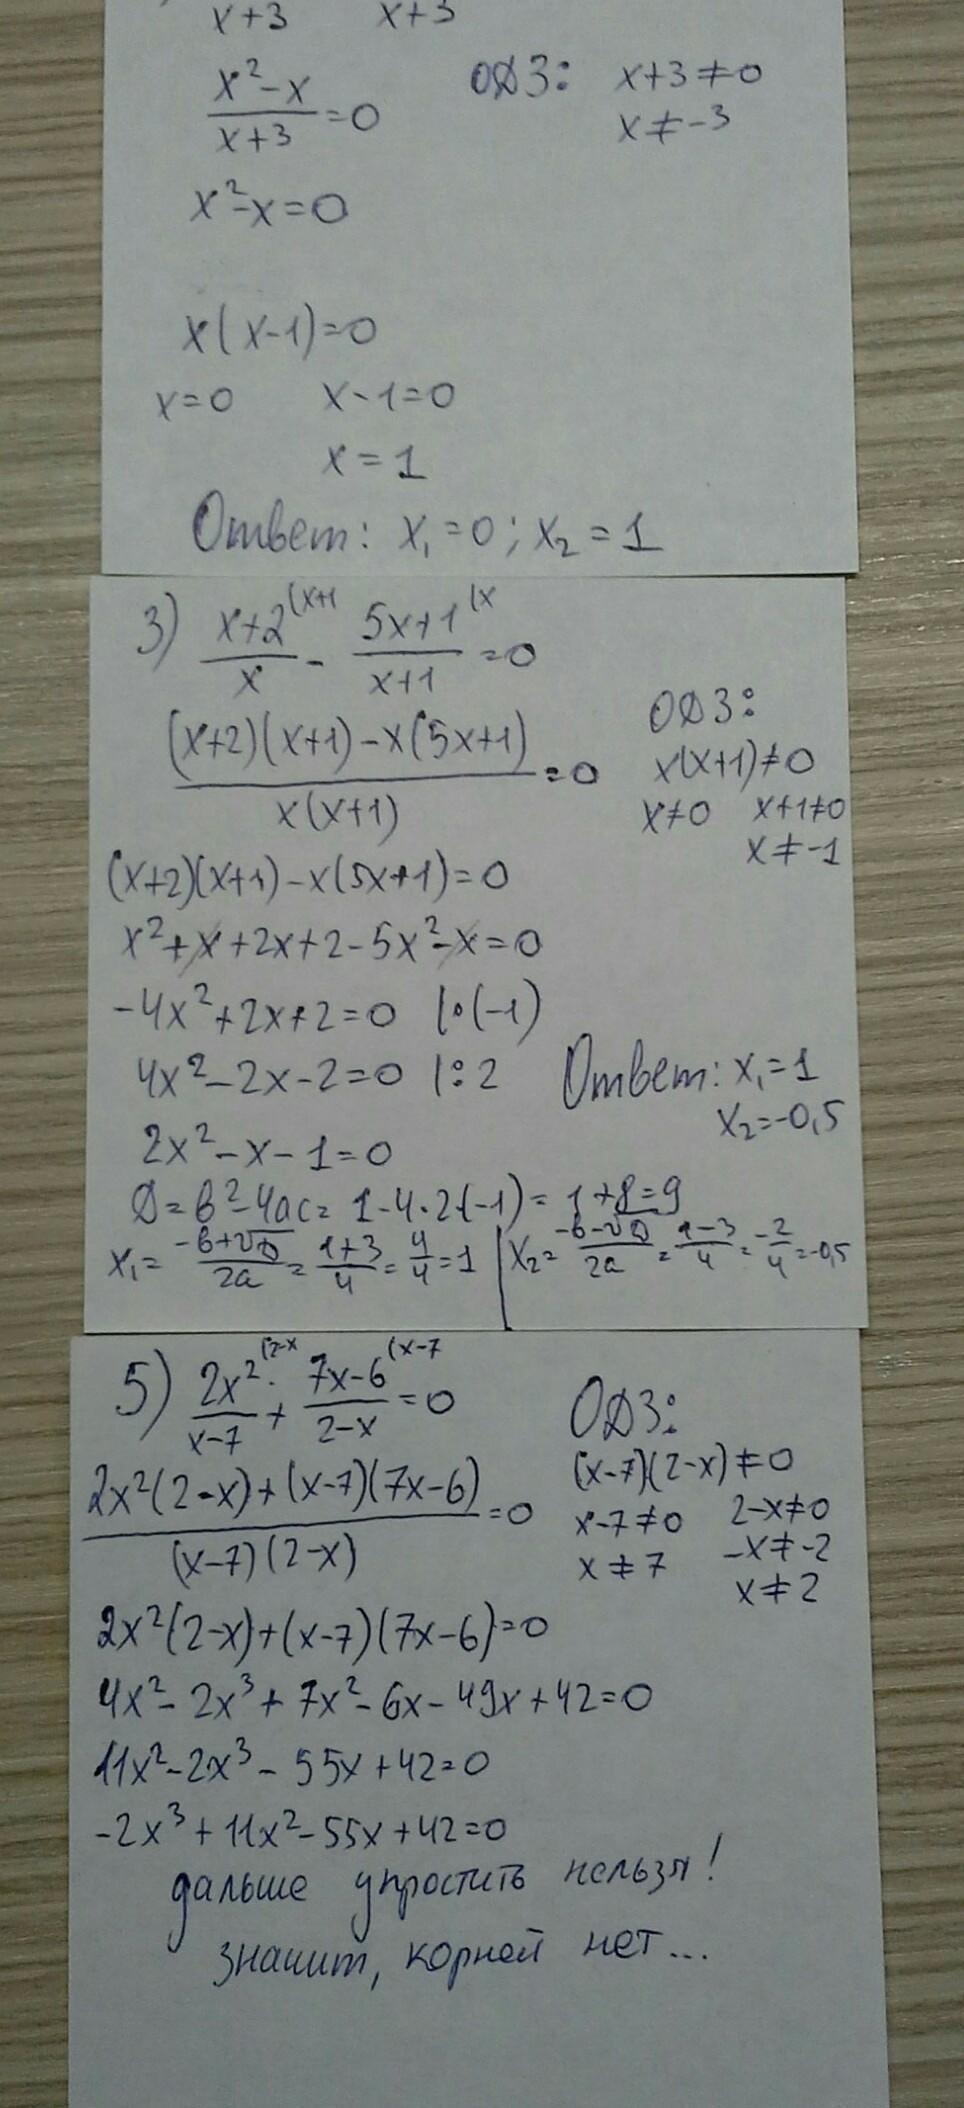 x+3 x+3
x²-x/x+3=0 ОДЗ: x+3≠0
x≠-3
x²-x=0
x(x-1)=0
x=0 x-1=0
x=1
Ответ: x₁=0; x₂=1
3) x+2/x (x+1 - 5x+1/x+1 (x =0
(x+2)(x+1)-x(5x+1)/x(x+1)=0
ОДЗ:
x(x+1)≠0
x≠0 x+1≠0
x≠-1
(x+2)(x+1)-x(5x+1)=0
x²+x+2x+2-5x²-x=0
-4x²+2x+2=0 |·(-1)
4x²-2x-2=0 |:2
2x²-x-1=0
Ответ: x₁=1
x₂=-0,5
D=b²-4ac=1-4·2·(-1)=1+8=9
x₁=-b+√D/2a=1+3/4=4/4=1 | x₂=-b-√D/2a=1-3/4=-2/4=-0,5
5) 2x²/x-7 (2-x + 7x-6/2-x (x-7 =0
2x²(2-x)+(x-7)(7x-6)/(x-7)(2-x)=0
ОДЗ:
(x-7)(2-x)≠0
x-7≠0 2-x≠0
x≠7 -x≠-2
x≠2
2x²(2-x)+(x-7)(7x-6)=0
4x²-2x³+7x²-6x-49x+42=0
11x²-2x³-55x+42=0
-2x³+11x²-55x+42=0
дальше упростить нельзя!
значит, корней нет...